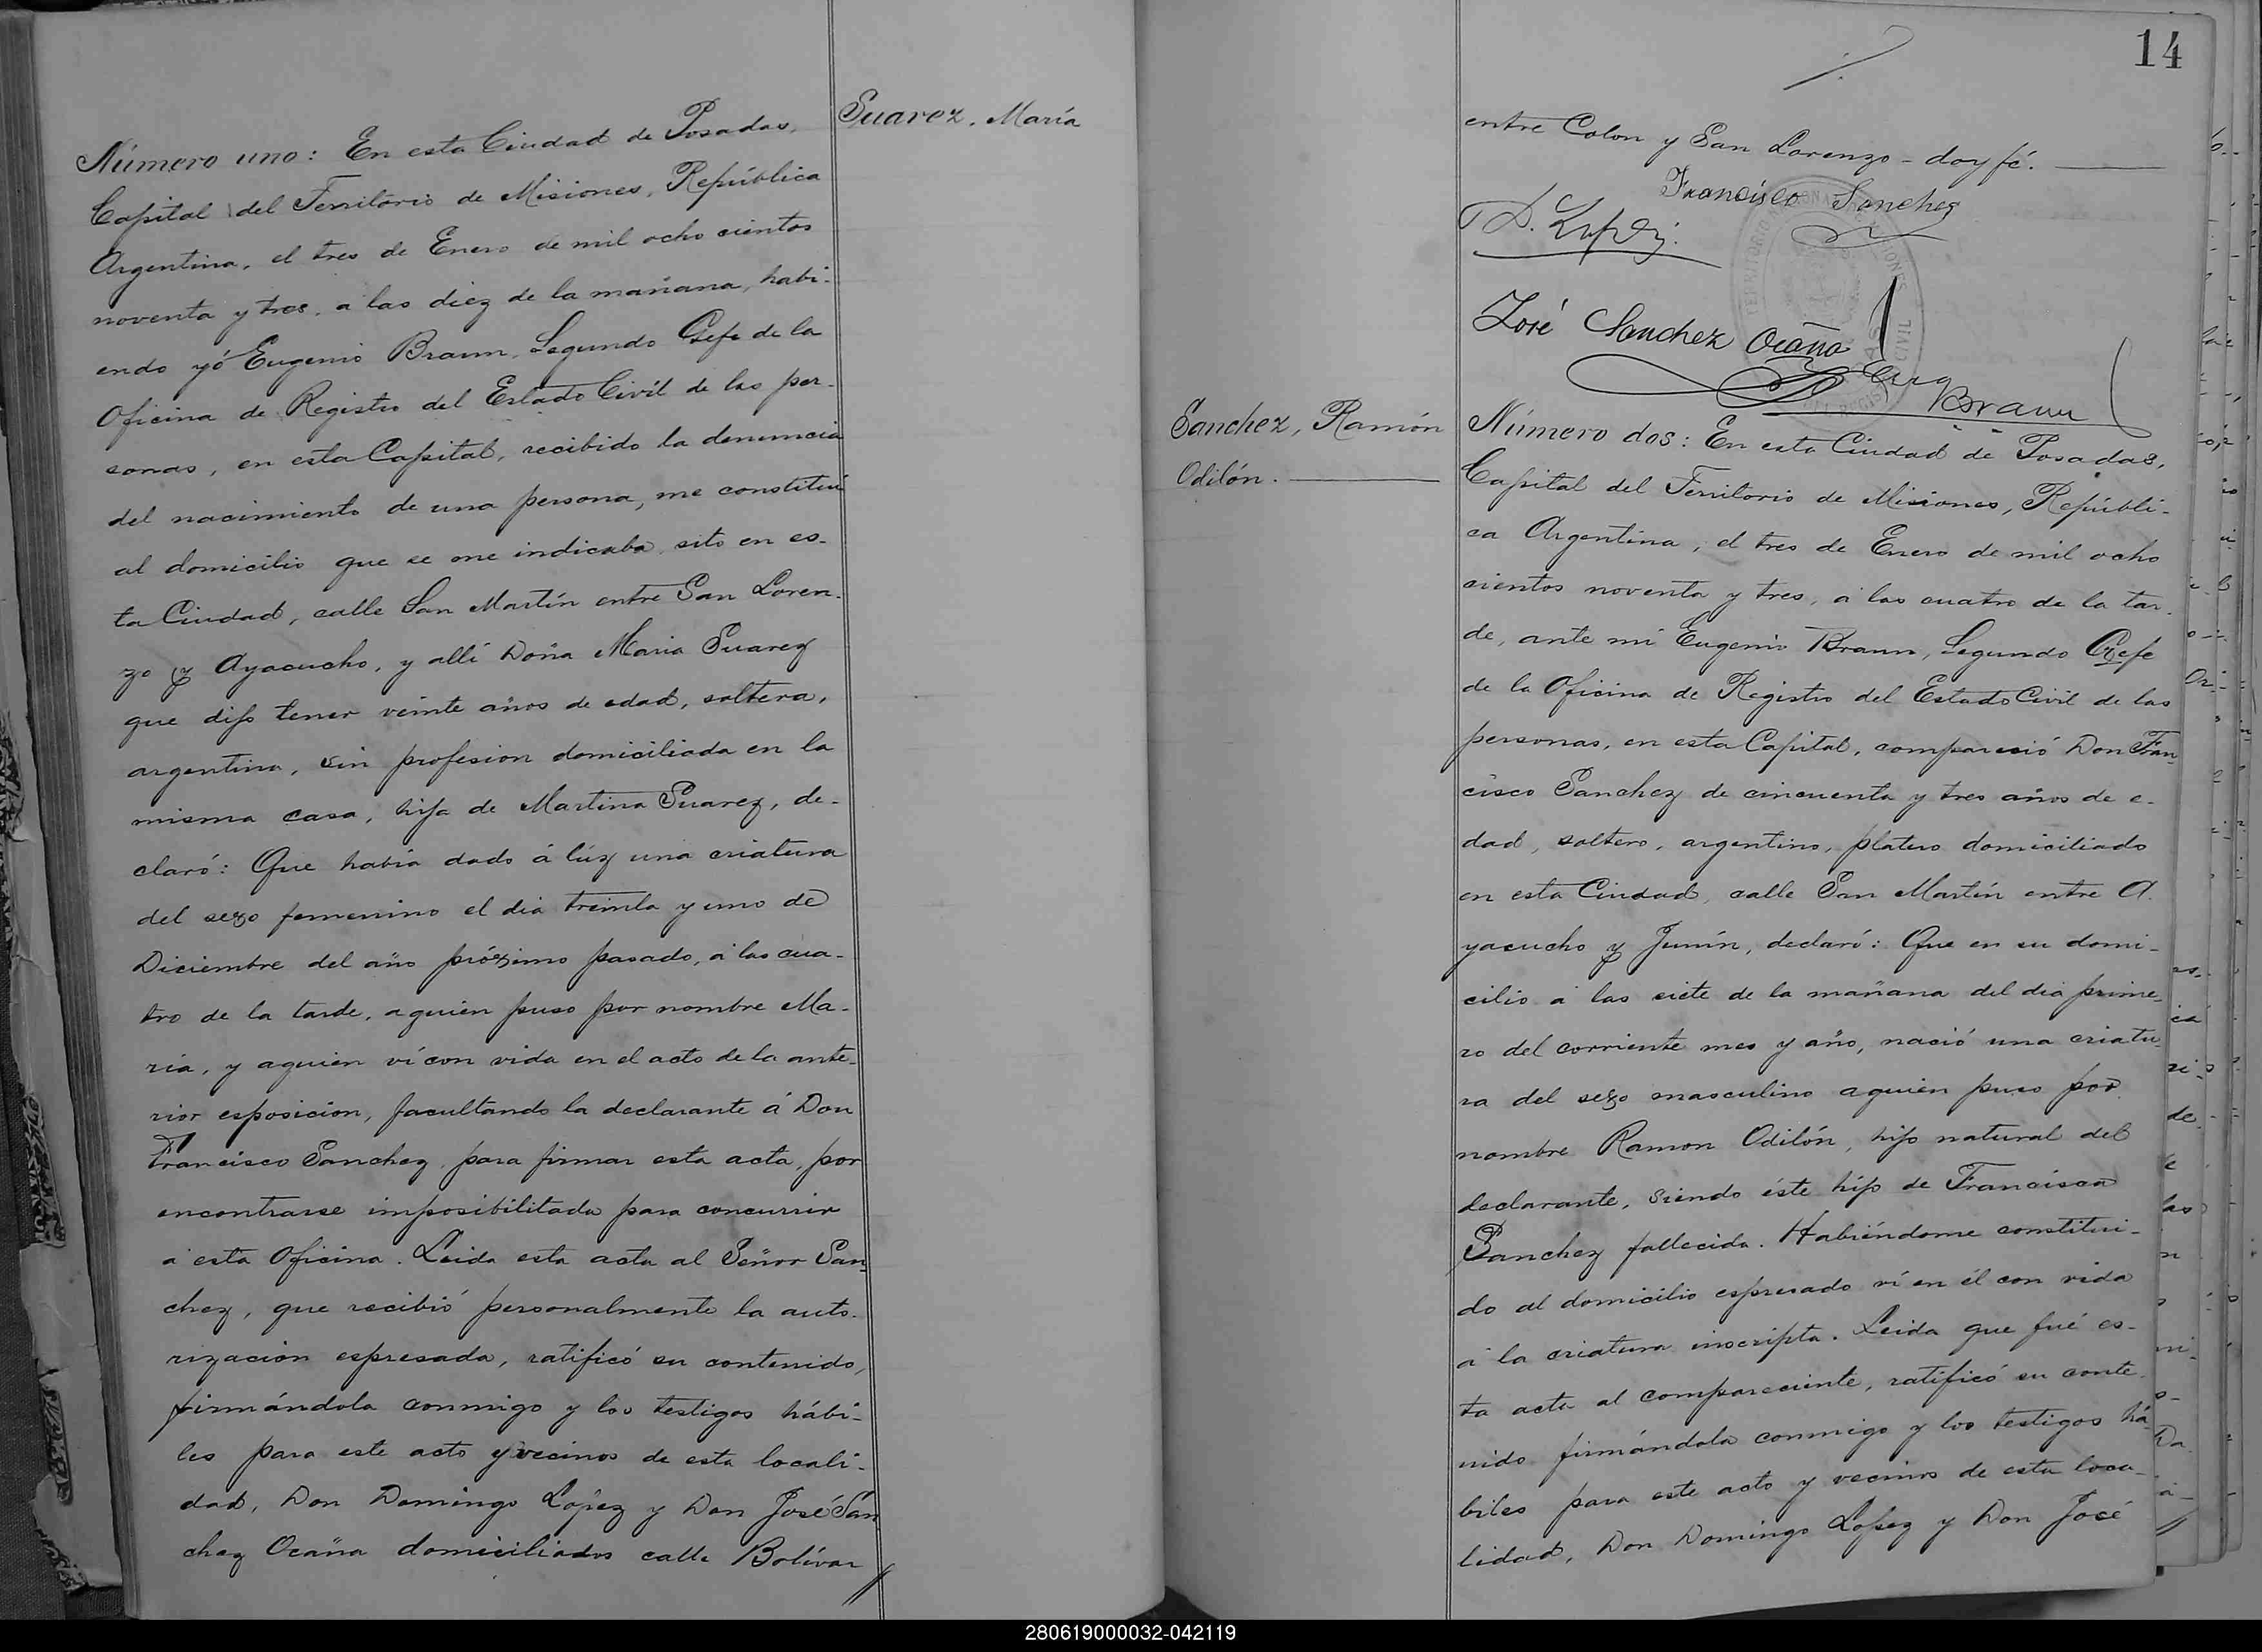 Suarez, María
Número uno: En esta Ciudad de Posadas,
Capital del Territorio de Misiones, República
Argentina, el tres de Enero de mil ocho cientos
noventa y tres, a las diez de la mañana, habi-
endo yó Eugenio Braun, Segundo Gefe de la
Oficina de Registro del Estado Civil de las per-
sonas, en esta Capital, recibido la denuncia
del nacimiento de una persona, me constituí
al domicilio que se me indicaba sito en es-
ta Ciudad, calle San Martín entre San Loren-
zo y Ayacucho, y allí Doña Maria Suarez
que dijo tener veinte años de edad, soltera,
argentina, sin profesion domiciliada en la
misma casa, hija de Martina Suarez, de-
claró: Que había dado á lúz una criatura
del sexo femenino el dia treinta y uno de
Diciembre del año próximo pasado, a las cua-
tro de la tarde, aquien puso por nombre Ma-
ría, y aquien ví con vida en el acto de la ante-
rior esposicion, facultando la declarante á Don
Francisco Sanchez, para firmar esta acta, por
encontrarse imposibilitada para concurrir
a esta Oficina. Leida esta acta al Señor San-
chez, que recibió personalmente la auto-
rización espresada, ratificó su contenido,
firmándola conmigo y los testigos hábi-
les para este acto y vecinos de esta locali-
dad, Don Domingo Lopez y Don José San
chez Ocaña domiciliados calle Bolívar
14
entre Colon y San Lorenzo - doy fé.
Francisco Sanchez
D. Lopez.
José Sanchez Ocaña
Eug Braun
Sanchez, Ramón
Odilón.
Número dos: En esta Ciudad de Posadas,
Capital del Territorio de Misiones, Repúbli-
ca Argentina, el tres de Enero de mil ocho
cientos noventa y tres, á las cuatro de la tar-
de, ante mi Eugenio Braun, Segundo Gefe
de la Oficina de Registro del Estado Civil de las
personas, en esta Capital, compareció Don Fran
cisco Sanchez de cincuenta y tres años de e-
dad, soltero, argentino, platero domiciliado
en esta Ciudad, calle San Martín entre A-
yacucho y Junín, declaró: Que en su domi-
cilio a las siete de la mañana del dia prime-
ro del corriente mes y año, nació una criatu-
ra del sexo masculino aquien puso por
nombre Ramon Odilón, hijo natural del
declarante, siendo éste hijo de Francisca
Sanchez fallecida. Habiéndome constitui-
do al domicilio espresado ví en él con vida
a la criatura inscripta. Leida que fué es-
ta acta al compareciente, ratificó su conte-
nido firmándola conmigo y los testigos há-
biles para este acto y vecinos de esta loca-
lidad, Don Domingo Lopez y Don José
280619000032-042119